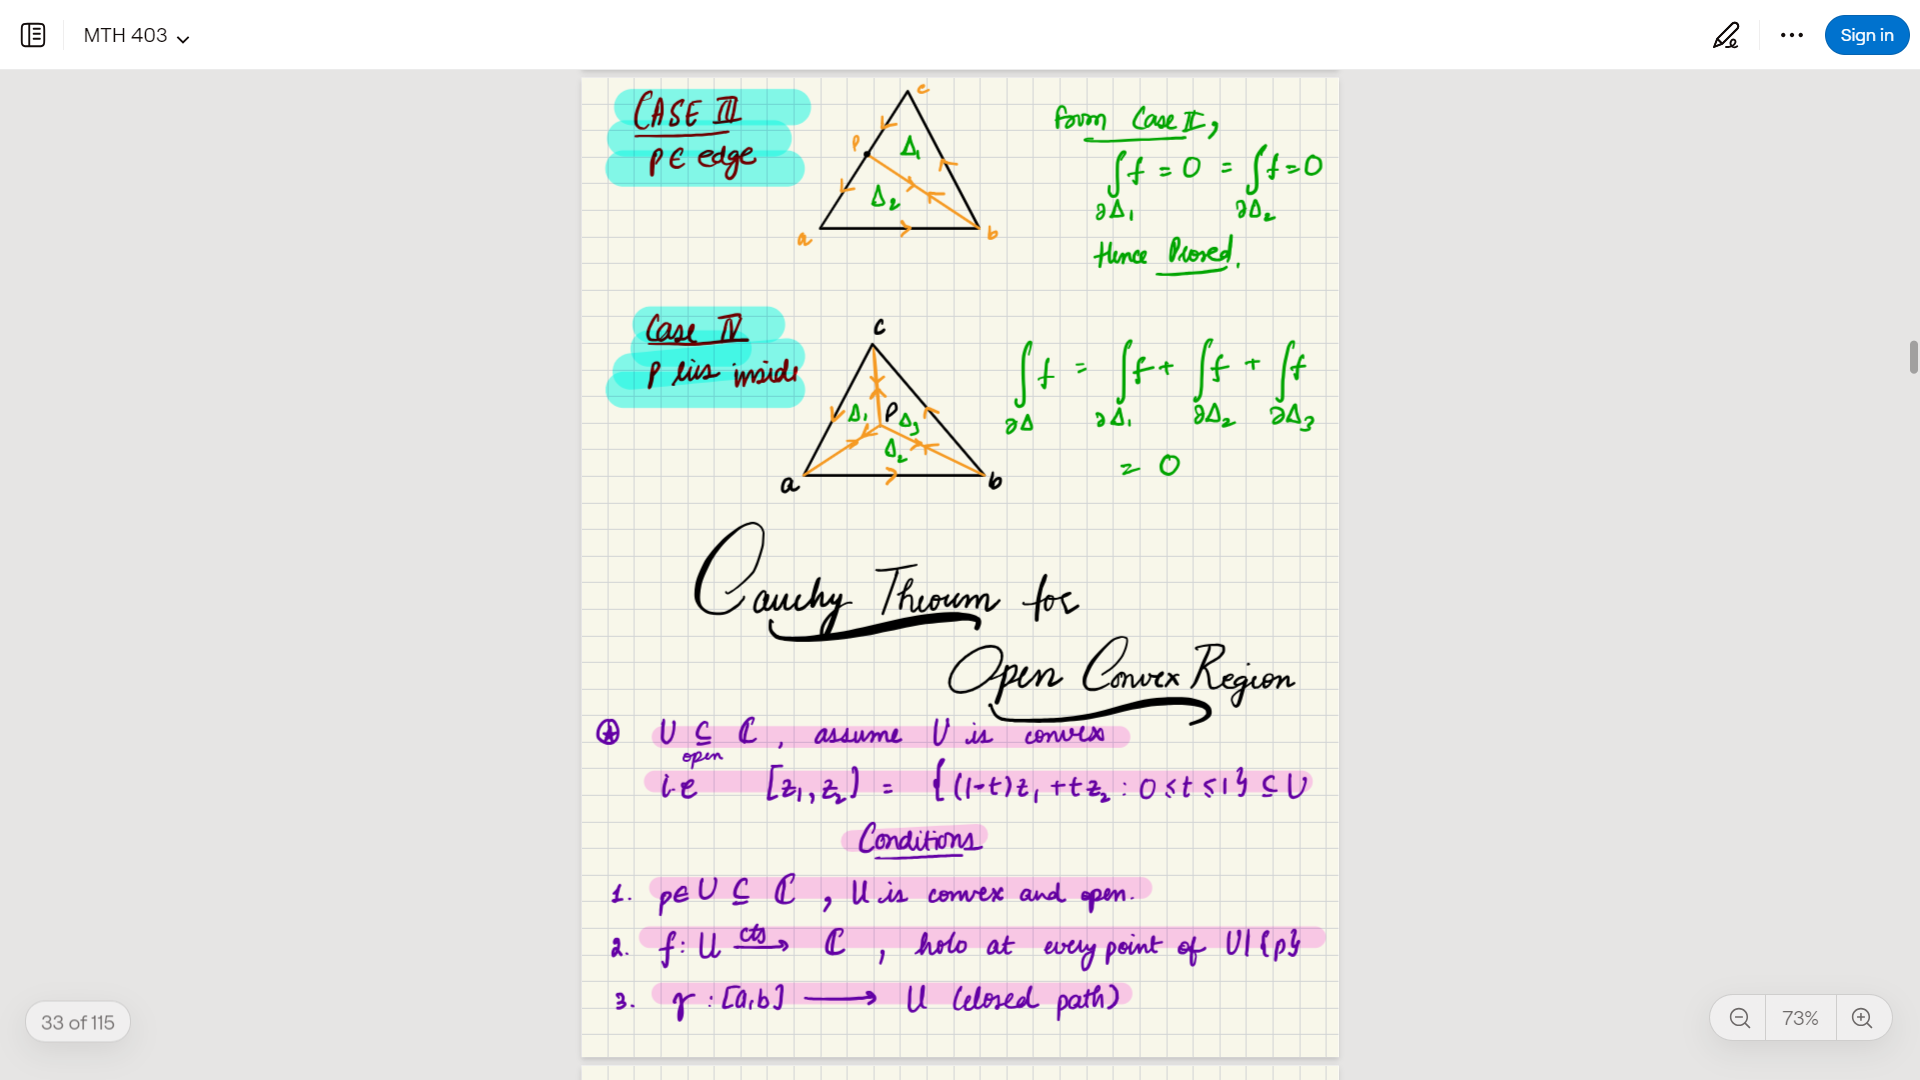 MTH 403
Sign in
CASE III
p ∈ edge
c
p
Δ₁
Δ₂
a
b
from Case II,
∫_{∂Δ₁} f = 0 = ∫_{∂Δ₂} f = 0
Hence Proved.
Case IV
P lies inside
c
Δ₁ P Δ₃
Δ₂
a
b
∫_{∂Δ} f = ∫_{∂Δ₁} f + ∫_{∂Δ₂} f + ∫_{∂Δ₃} f
= 0
Cauchy Theorem for
Open Convex Region
U ⊆ ℂ, assume U is convex
open
i.e [z₁, z₂] = {(1-t)z₁ + tz₂ : 0 ≤ t ≤ 1} ⊆ U
Conditions
1. p ∈ U ⊆ ℂ, U is convex and open.
2. f : U cts⟶ ℂ, holo at every point of U\{p}
3. γ : [a,b] ⟶ U (closed path)
33 of 115
73%